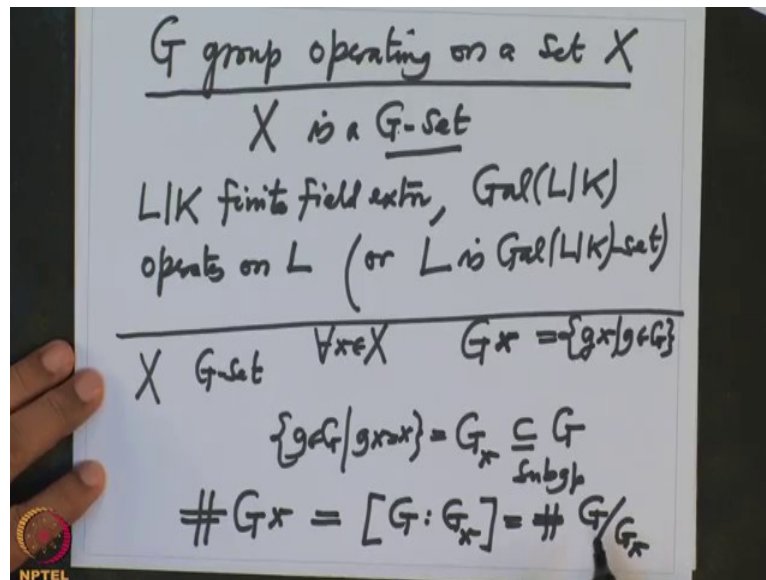 G group operating on a set X
X is a G-set
L|K finite field extn, Gal(L|K)
operates on L (or L is Gal(L|K)-set)
X G-set ∀x∈X Gx = {gx|g∈G}
{g∈G|gx=x} = G_x ⊆ G
subgp
#Gx = [G:G_x] = # G/G_x
NPTEL